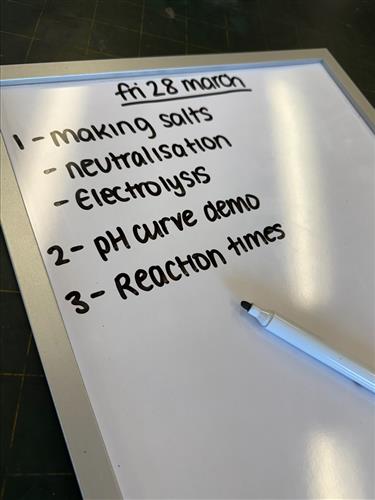 fri 28 march
1 - making salts
- neutralisation
- Electrolysis
2 - pH curve demo
3 - Reaction times